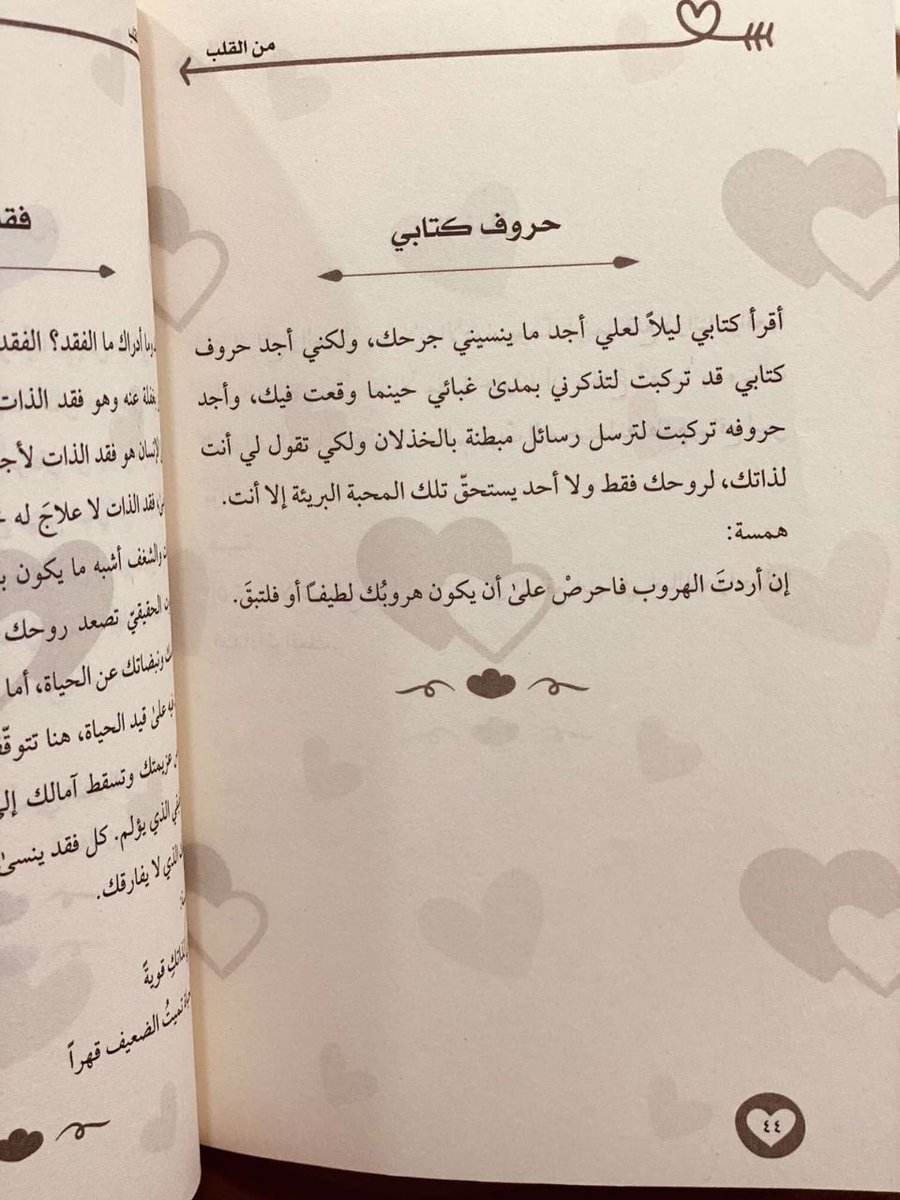 من القلب
حروف كتابي
أقرأ كتابي ليلاً لعلي أجد ما ينسيني جرحك، ولكني أجد حروف
كتابي قد تركبت لتذكرني بمدىٰ غبائي حينما وقعت فيك، وأجد
حروفه تركبت لترسل رسائل مبطنة بالخذلان ولكي تقول لي أنت
لذاتك، لروحك فقط ولا أحد يستحقّ تلك المحبة البريئة إلا أنت.
همسة:
إن أردتَ الهروب فاحرصْ علىٰ أن يكون هروبُك لطيفًا أو فلتبقَ.
٤٤
وما أدراك ما الفقد؟ الفقد
عنه وهو فقد الذات
هو فقد الذات لأجـ
فقد الذات لا علاجَ له
والشغف أشبه ما يكون بـ
الحقيقيّ تصعد روحك
ونبضاتك عن الحياة، أما
علىٰ قيد الحياة، هنا تتوقّف
عزيمتك وتسقط آمالك إلى
الذي يؤلم. كل فقد ينسىٰ
الذي لا يفارقك.
قويةً
تميتُ الضعيف قهراً